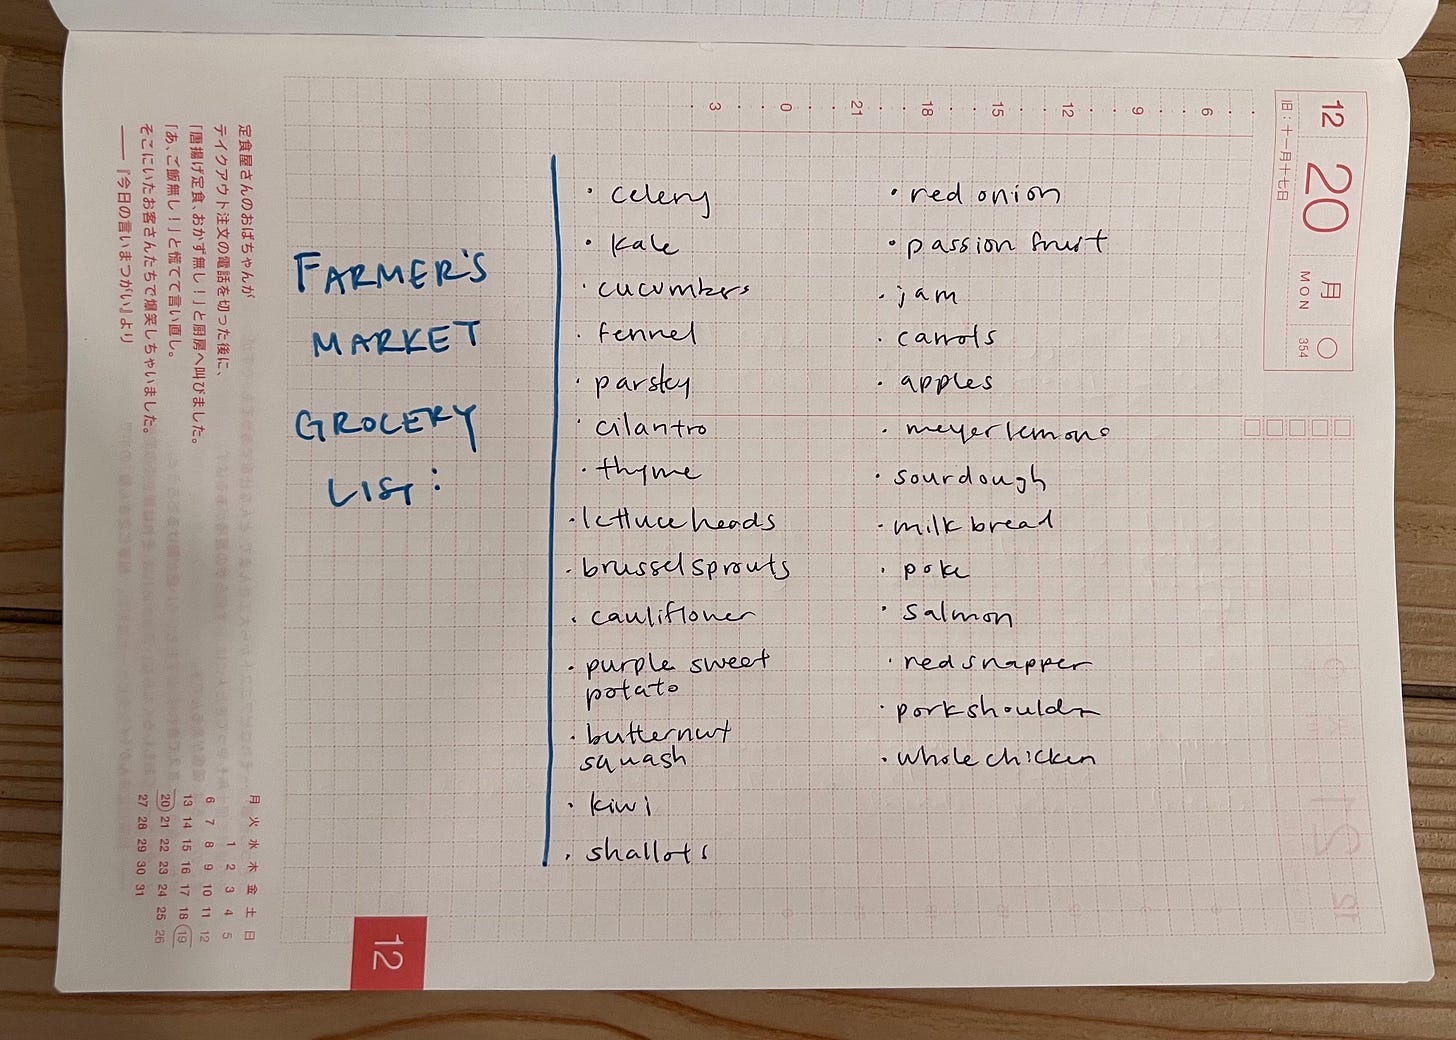 FARMER'S
MARKET
GROCERY
LIST:
· celery
· kale
· cucumbers
· fennel
· parsley
· cilantro
· thyme
· lettuce heads
· brussel sprouts
· cauliflower
· purple sweet
potato
· butternut
squash
· kiwi
· shallots
· red onion
· passion fruit
· jam
· carrots
· apples
· meyer lemons
· sourdough
· milk bread
· poke
· salmon
· red snapper
· pork shoulder
· whole chicken
12
20
月
MON
354
旧:十一月十七日
6
9
12
15
18
21
0
3
定食屋さんのおばちゃんが
テイクアウト注文の電話を切った後に、
「唐揚げ定食、おかず無し!」と厨房へ叫びました。
「あ、ご飯無し!」と慌てて言い直し。
そこにいたお客さんたちで爆笑しちゃいました。
——『今日の言いまつがい』より
月 火 水 木 金 土 日
1 2 3 4 5
6 7 8 9 10 11 12
13 14 15 16 17 18 19
20 21 22 23 24 25 26
27 28 29 30 31
12